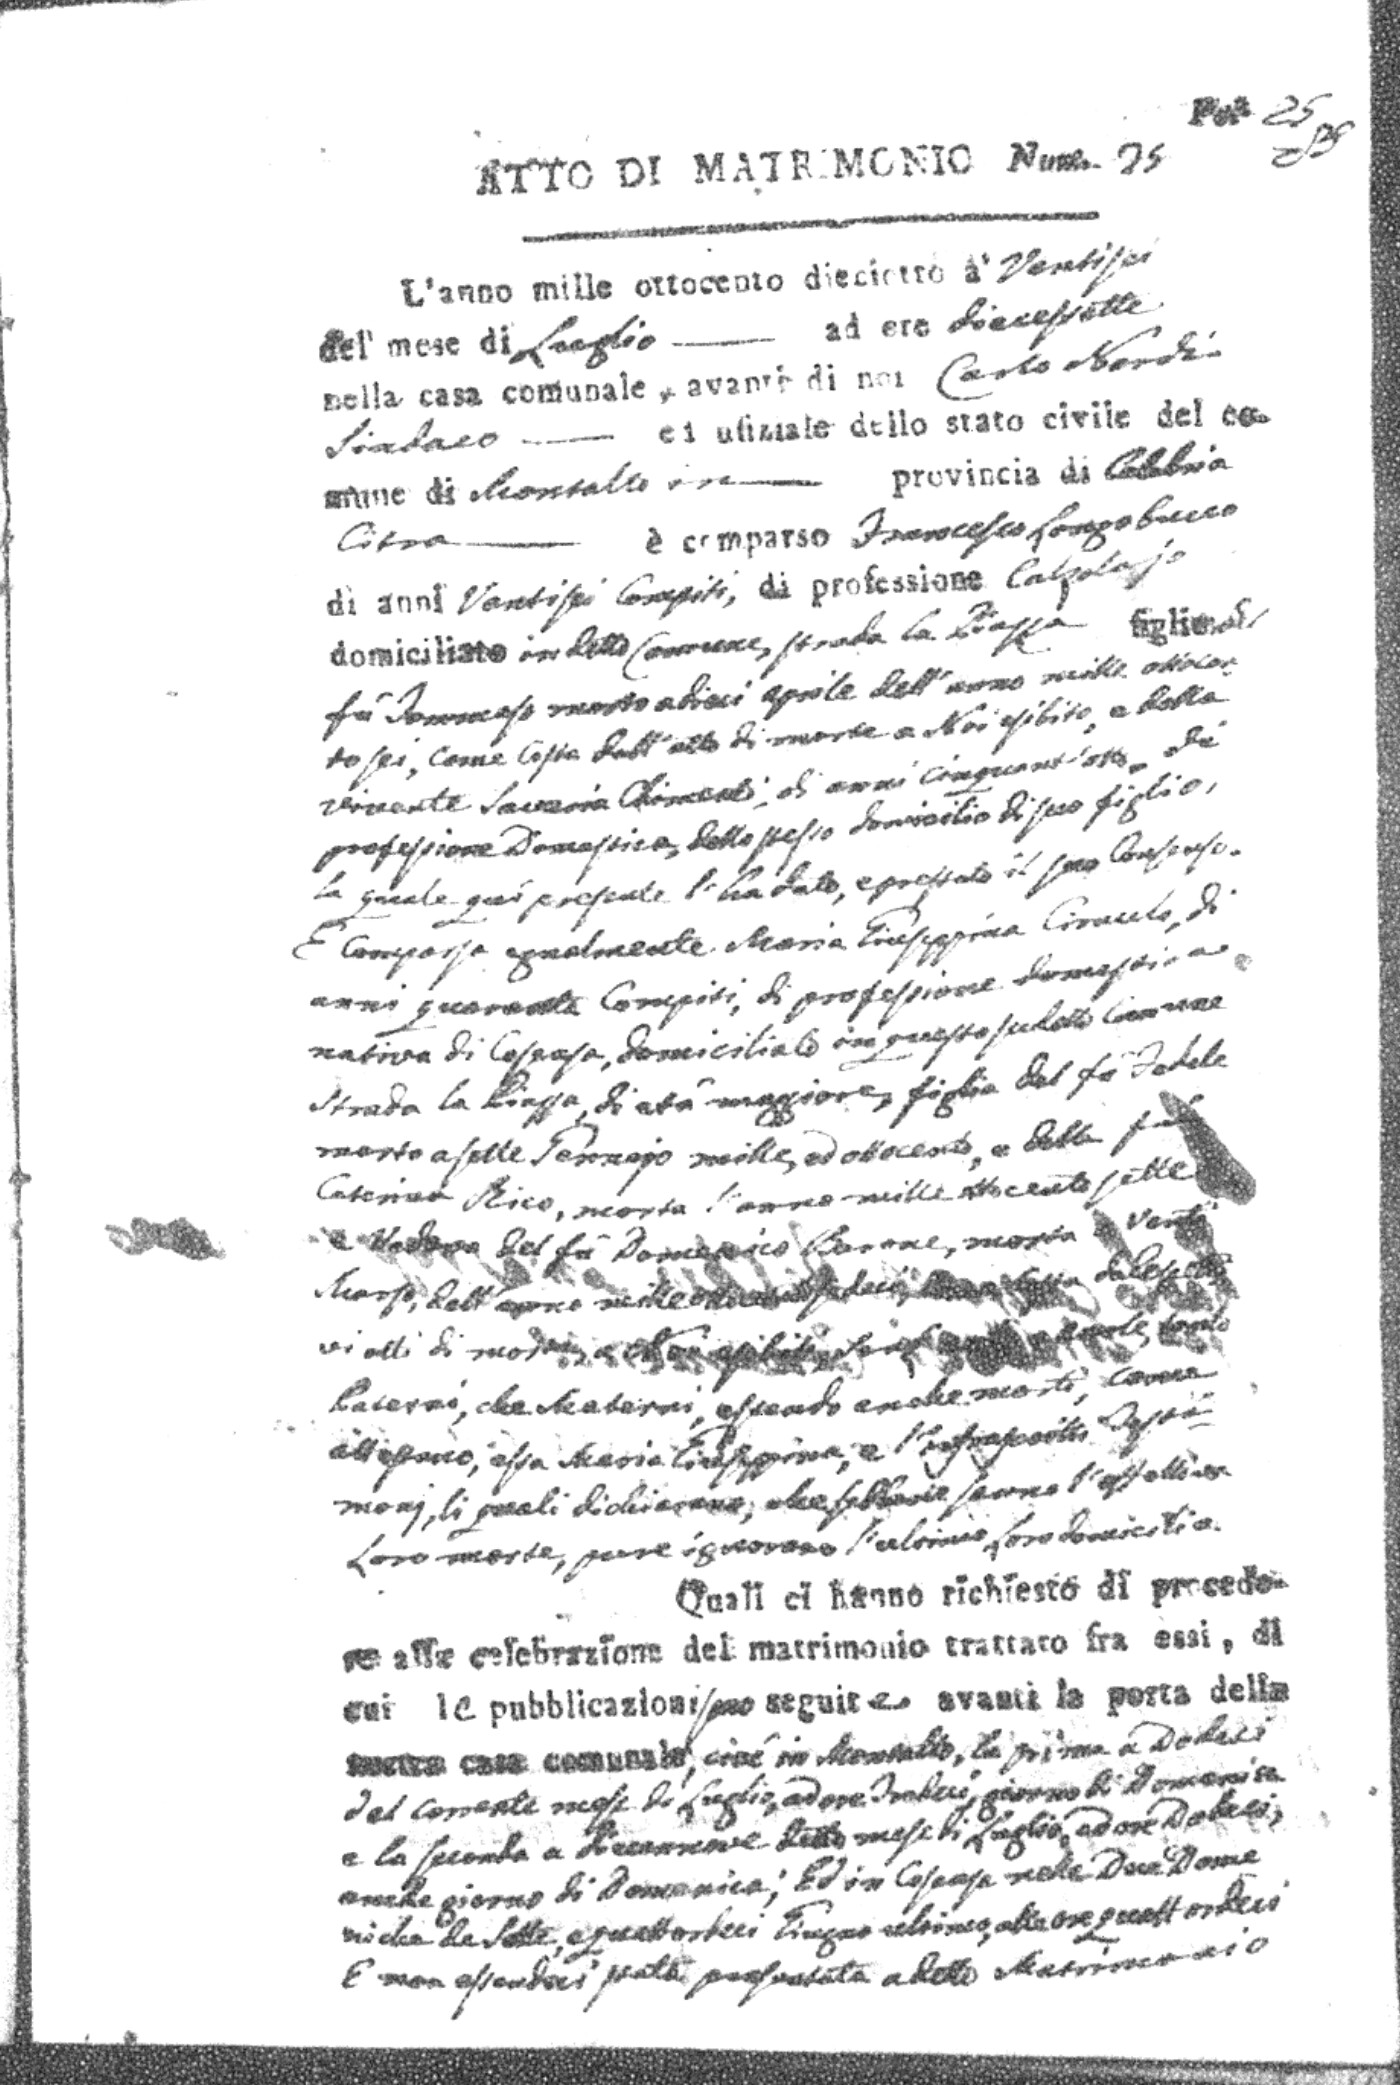 Fol. 25
ATTO DI MATRIMONIO Num. 25
L'anno mille ottocento dieciotto a' Ventisei
del mese di Luglio ad ore diecessette
nella casa comunale, avanti di noi Carlo Nardi
Sindaco ed ufiziale dello stato civile del co-
mune di Montalto in provincia di Calabria
Citra è comparso Francesco Longobucco
di anni Ventisei Compiti, di professione Calzolajo
domiciliato in detto Comune, strada la Piazza figlio del
fù Tommaso morto a dieci aprile dell'anno mille ottocen-
to sei, come costa dall'atto di morte a Noi esibito, e della
vivente Saveria Chimenti, di anni cinquant'otto, di
professione Domestica, dello stesso domicilio di suo figlio,
la quale quì presente l'ha dato, e prestato il suo Consenso.
E Comparsa egualmente Maria Giuseppina Ciraulo, di
anni quaranta Compiti, di professione domestica
nativa di Cosenza, domiciliata in questo sudetto Comune
Strada la Piazza, di età maggiore, figlia del fù Fedele
morto a sette Gennajo mille, ed ottocento, e della fù
Caterina Rico, morta l'anno mille ottocento sette
e Vedova del fù Domenico Barone, morto a venti
Marzo, dell'anno mille ottocento sedici, dalli rispetti-
vi atti di morte, a Noi esibiti, tanto
Paterni, che Materni, essendo anche morti, come
attestano, essa Maria Giuseppina, e l'infrascritti Testi-
monj, li quali dichiarano, che sebbene sanno l'effettiva
Loro morte, pure ignorano l'ultimo Loro domicilio.
Quali ci hanno richiesto di procede-
re alla celebrazione del matrimonio trattato fra essi, di
cui le pubblicazioni sono seguite avanti la porta della
nostra casa comunale, cioè in Montalto, la prima a Dodeci
del corrente mese di Luglio, ad ore Tredeci, giorno di Domenica
e la seconda a diecennove detto mese di Luglio, ad ore Dodeci,
anche giorno di Domenica; Ed in Cosenza nelle Due Dome
niche de Sette, e quattordeci Giugno ultimo, alle ore quattordeci
E non essendoci stata presentata a detto Matrimonio